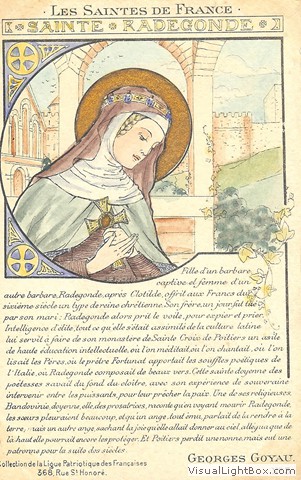 · Les Saintes de France ·
SAINTE RADEGONDE
Fille d'un barbare
captive et femme d'un
autre barbare, Radegonde, après Clotilde, offrit aux Francs du
sixième siècle un type de reine chrétienne. Son frère, un jour, fut tué
par son mari: Radegonde alors prit le voile, pour expier et prier.
Intelligence d'élite, tout ce qu'elle s'était assimilé de la culture latine
lui servit à faire de son monastère de Sainte Croix de Poitiers un asile
de haute éducation intellectuelle, où l'on méditait, où l'on chantait, où l'on
lisait les Pères, où le prêtre Fortunat apportait les souffles poétiques de
l'Italie, où Radegonde composait de beaux vers. Cette sainte doyenne des
poétesses savait du fond du cloître, avec son expérience de souveraine
intervenir entre les puissants, pour leur prêcher la paix. Une de ses religieuses,
Baudonivie, éperdue, elle, des prosodistes, raconte qu'en voyant mourir Radegonde,
les sœurs pleuraient beaucoup, et qu'un ange, tout ému, parlait de la rendre à la
terre, mais un autre ange, sachant la joie qu'elle allait donner au ciel, allégua que de
là haut elle pourrait encore les protéger. Et Poitiers perdit une nonne, mais eut une
patronne pour la suite des siècles.
GEORGES GOYAU.
Collection de la Ligue Patriotique des Françaises
368, Rue St Honoré.
VisualLightBox.com